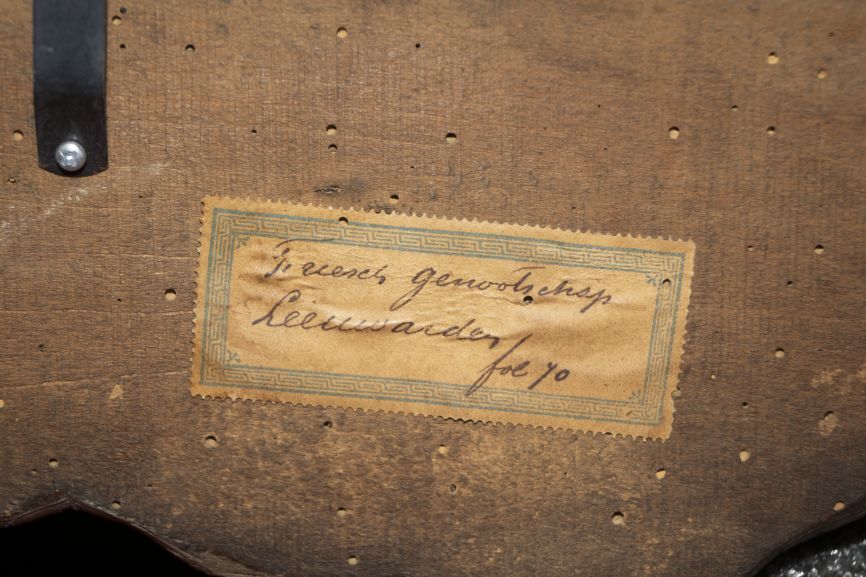 Friesch genootschap
Leeuwarden
fol 70